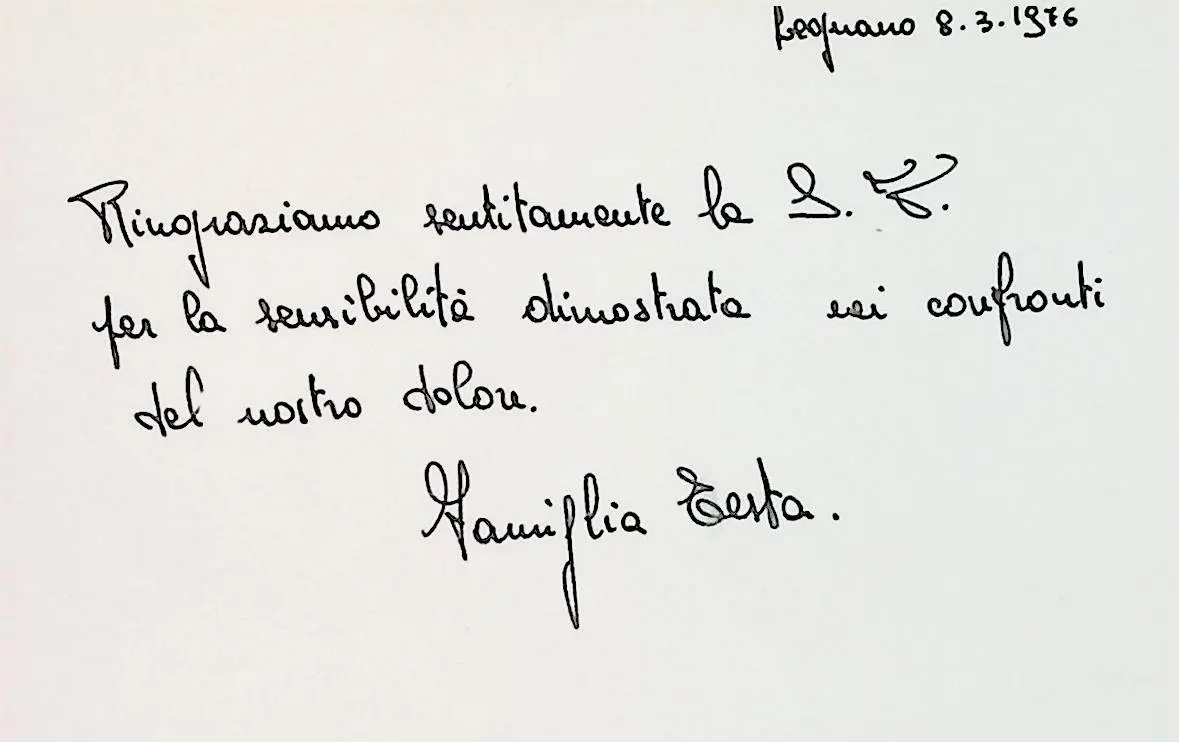 Legnano 8.3.1976
Ringraziamo sentitamente la S. V.
per la sensibilità dimostrata nei confronti
del nostro dolore.
Famiglia Testa.